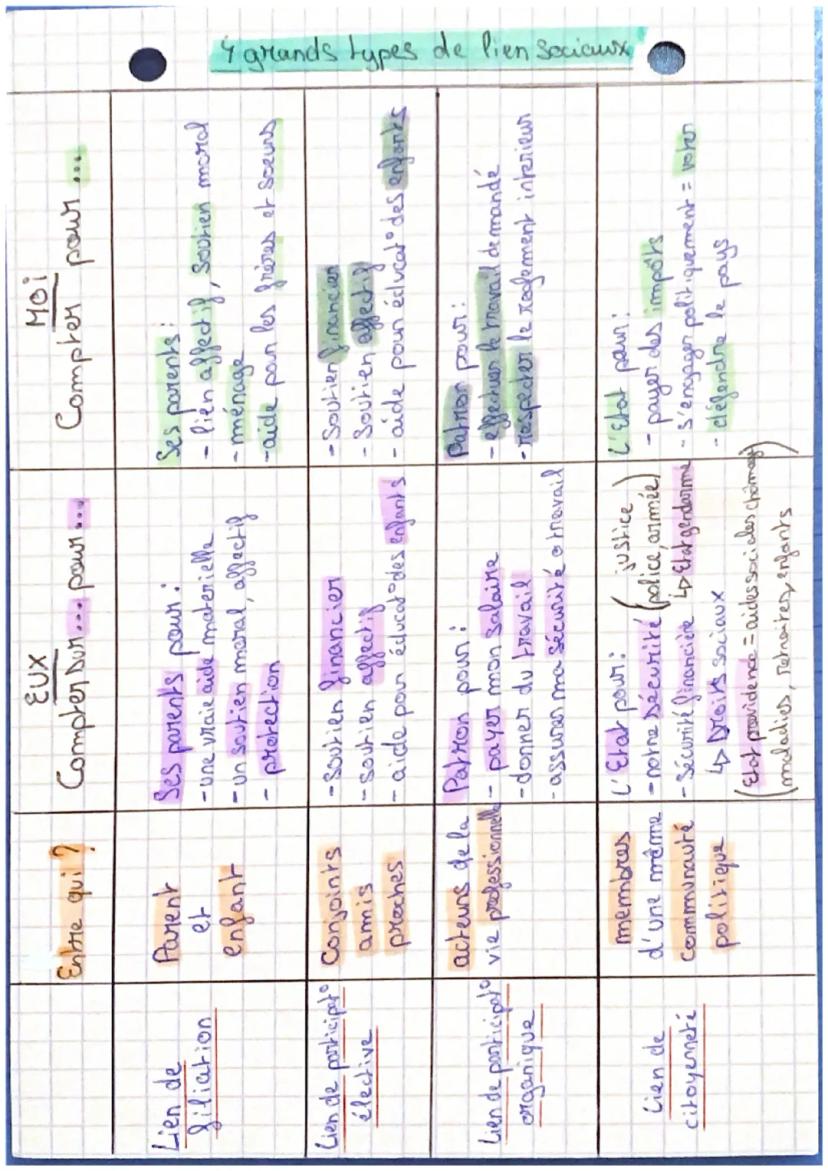 4 grands types de lien sociaux
Entre qui ?
EUX
Compter sur... pour ...
MOI
Compter pour ...
Lien de
filiation
Parent
et
enfant
Ses parents pour :
- une vraie aide materielle
- un soutien moral, affectif
- protection
Ses parents :
- lien affectif, soutien moral
- ménage
- aide par les frères et soeurs
Lien de participat°
élective
Conjoints
amis
proches
- Soutien financier
- soutien affectif
- aide pour éducat° des enfants
- Soutien financier
- Soutien affectif
- aide pour éducat° des enfants
Lien de participat°
organique
acteurs de la
vie professionnelle
Patron pour :
- payer mon salaire
- donner du travail
- assurer ma sécurité o travail
Patron pour :
- effectuer le travail demandé
- respecter le reglement interieur
Lien de
citoyenneté
membres
d'une même
communauté
politique
L'Etat pour :
- notre sécurité (justice
police, armée)
- Sécurité financière ↳ Etat gendarme
↳ Droits sociaux
(Etat providence = aides sociales chômage)
(maladies, retraites, enfants
L'Etat pour :
- payer des impôts
- s'engager politiquement = voter
- défendre le pays